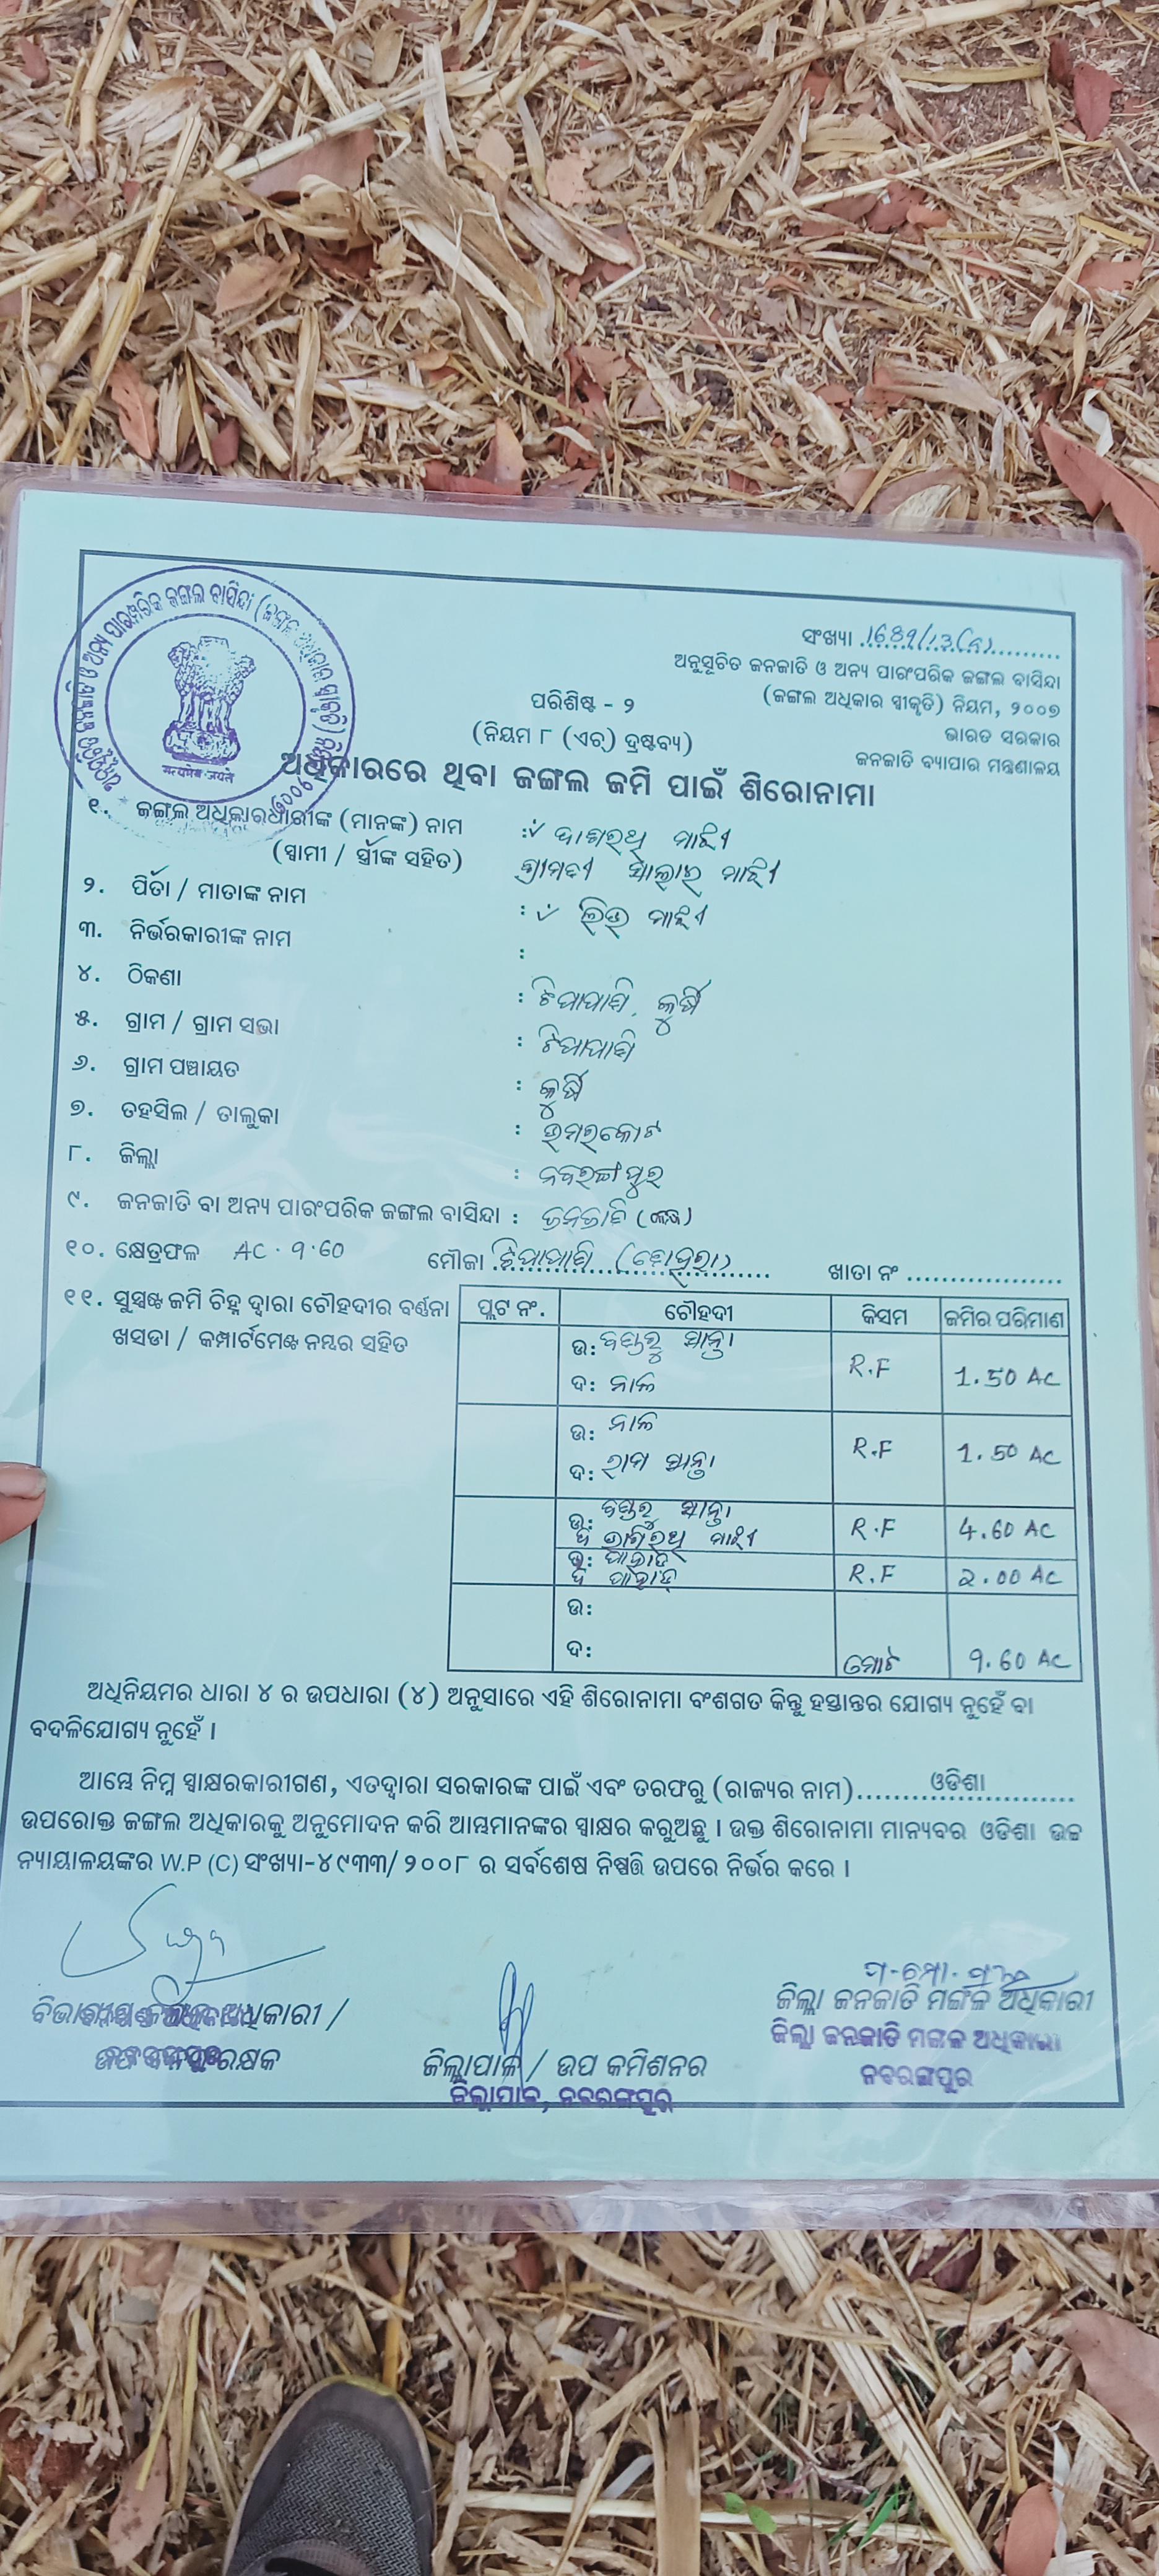 ସଂଖ୍ୟା
ଅନୁସୂଚିତ ଜନଜାତି ଓ ଅନ୍ୟ ପାରଂପରିକ ଜଙ୍ଗଲ ବାସିନ୍ଦା
(ଜଙ୍ଗଲ ଅଧିକାର ସ୍ୱୀକୃତି) ନିୟମ, ୨୦୦୭
ଭାରତ ସରକାର
ଜନଜାତି ବ୍ୟାପାର ମନ୍ତ୍ରଣାଳୟ
ପରିଶିଷ୍ଟ - ୨
(ନିୟମ ୮ (ଏଚ୍) ଦ୍ରଷ୍ଟବ୍ୟ)
सत्यमेव जयते
ଅଧିକାରରେ ଥିବା ଜଙ୍ଗଲ ଜମି ପାଇଁ ଶିରୋନାମା
୧. ଜଙ୍ଗଲ ଅଧିକାରଧାରୀଙ୍କ (ମାନଙ୍କ) ନାମ : ଦାଶରଥି ମାଝୀ
(ସ୍ୱାମୀ / ସ୍ତ୍ରୀଙ୍କ ସହିତ) ଶ୍ରୀମତୀ ମାଝୀ
୨. ପିତା / ମାତାଙ୍କ ନାମ : ମାଝୀ
୩. ନିର୍ଭରକାରୀଙ୍କ ନାମ :
୪. ଠିକଣା :
୫. ଗ୍ରାମ / ଗ୍ରାମ ସଭା :
୬. ଗ୍ରାମ ପଞ୍ଚାୟତ :
୭. ତହସିଲ / ତାଲୁକା : ଉମରକୋଟ
୮. ଜିଲ୍ଲା : ନବରଙ୍ଗପୁର
୯. ଜନଜାତି ବା ଅନ୍ୟ ପାରଂପରିକ ଜଙ୍ଗଲ ବାସିନ୍ଦା : ଜନଜାତି
୧୦. କ୍ଷେତ୍ରଫଳ AC. 9.60 ମୌଜା ଖାତା ନଂ
୧୧. ସୁସ୍ପଷ୍ଟ ଜମି ଚିହ୍ନ ଦ୍ୱାରା ଚୌହଦୀର ବର୍ଣ୍ଣନା
ଖସଡା / କମ୍ପାର୍ଟମେଣ୍ଟ ନମ୍ବର ସହିତ
ପ୍ଲଟ ନଂ. ଚୌହଦୀ କିସମ ଜମିର ପରିମାଣ
ଉ: ସାନ୍ତା
ଦ: ନାଳ R.F 1.50 AC
ଉ: ନାଳ
ଦ: ରାମ ସାନ୍ତା R.F 1.50 AC
ଉ: ସାନ୍ତା
ଦ ମାଝୀ R.F 4.60 AC
ଉ: ପାହାଡ
ଦ ପାହାଡ R.F 2.00 AC
ଉ:
ଦ: ମୋଟ 9.60 AC
ଅଧିନିୟମର ଧାରା ୪ ର ଉପଧାରା (୪) ଅନୁସାରେ ଏହି ଶିରୋନାମା ବଂଶଗତ କିନ୍ତୁ ହସ୍ତାନ୍ତର ଯୋଗ୍ୟ ନୁହେଁ ବା
ବଦଳିଯୋଗ୍ୟ ନୁହେଁ ।
ଆମ୍ଭେ ନିମ୍ନ ସ୍ୱାକ୍ଷରକାରୀଗଣ, ଏତଦ୍ୱାରା ସରକାରଙ୍କ ପାଇଁ ଏବଂ ତରଫରୁ (ରାଜ୍ୟର ନାମ) ଓଡିଶା
ଉପରୋକ୍ତ ଜଙ୍ଗଲ ଅଧିକାରକୁ ଅନୁମୋଦନ କରି ଆମ୍ଭମାନଙ୍କର ସ୍ୱାକ୍ଷର କରୁଅଛୁ । ଉକ୍ତ ଶିରୋନାମା ମାନ୍ୟବର ଓଡିଶା ଉଚ୍ଚ
ନ୍ୟାୟାଳୟଙ୍କର W.P (C) ସଂଖ୍ୟା-୪୯୩୩/ ୨୦୦୮ ର ସର୍ବଶେଷ ନିଷ୍ପତ୍ତି ଉପରେ ନିର୍ଭର କରେ ।
ଜିଲ୍ଲା ଜନଜାତି ମଙ୍ଗଳ ଅଧିକାରୀ
ଜିଲ୍ଲା ଜନଜାତି ମଙ୍ଗଳ ଅଧିକାରୀ
ନବରଙ୍ଗପୁର
ଜିଲ୍ଲାପାଳ / ଉପ କମିଶନର
ଜିଲ୍ଲାପାଳ, ନବରଙ୍ଗପୁର